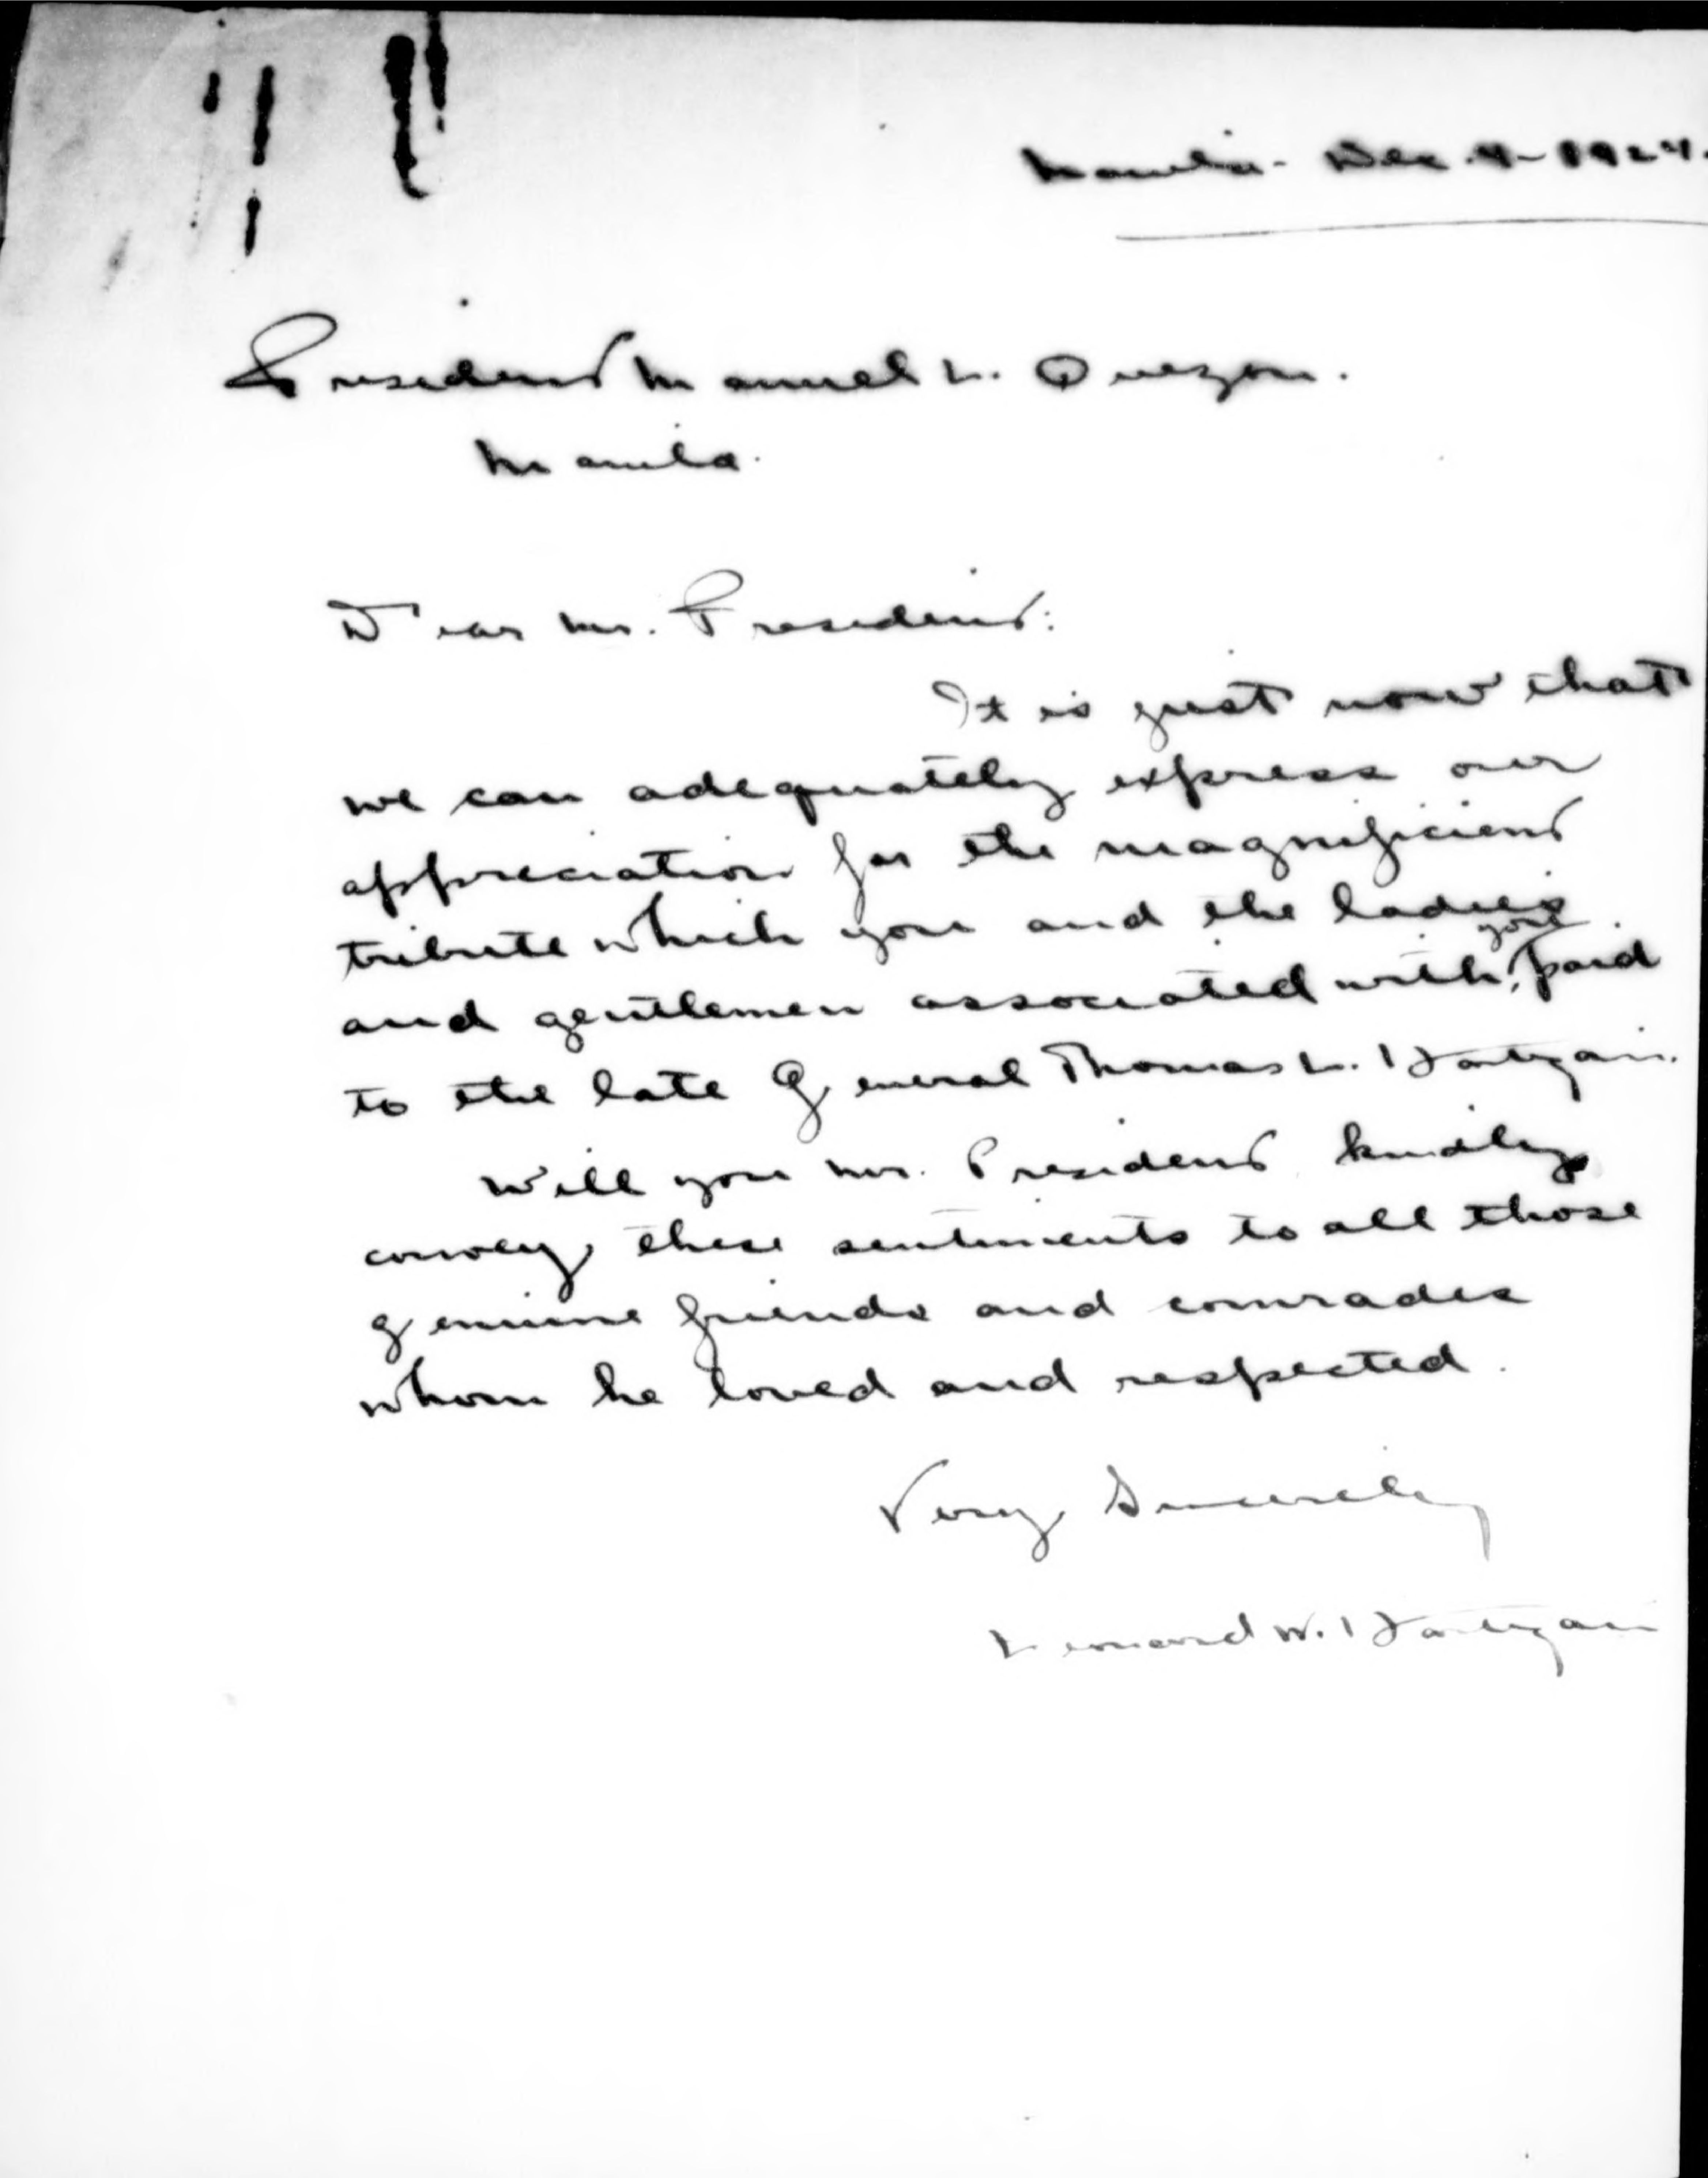 Manila - Dec 4 - 1924.
President Manuel L. Quezon.
Manila.
Dear Mr. President:
It is just now that
we can adequately express our
appreciation for the magnificient
tribute which you and the ladies
and gentlemen associated with you paid
to the late General Thomas L. Hartigan.
Will you Mr. President kindly
convey these sentiments to all those
genuine friends and comrades
whom he loved and respected.
Very Sincerely
Leonard W. Hartigan